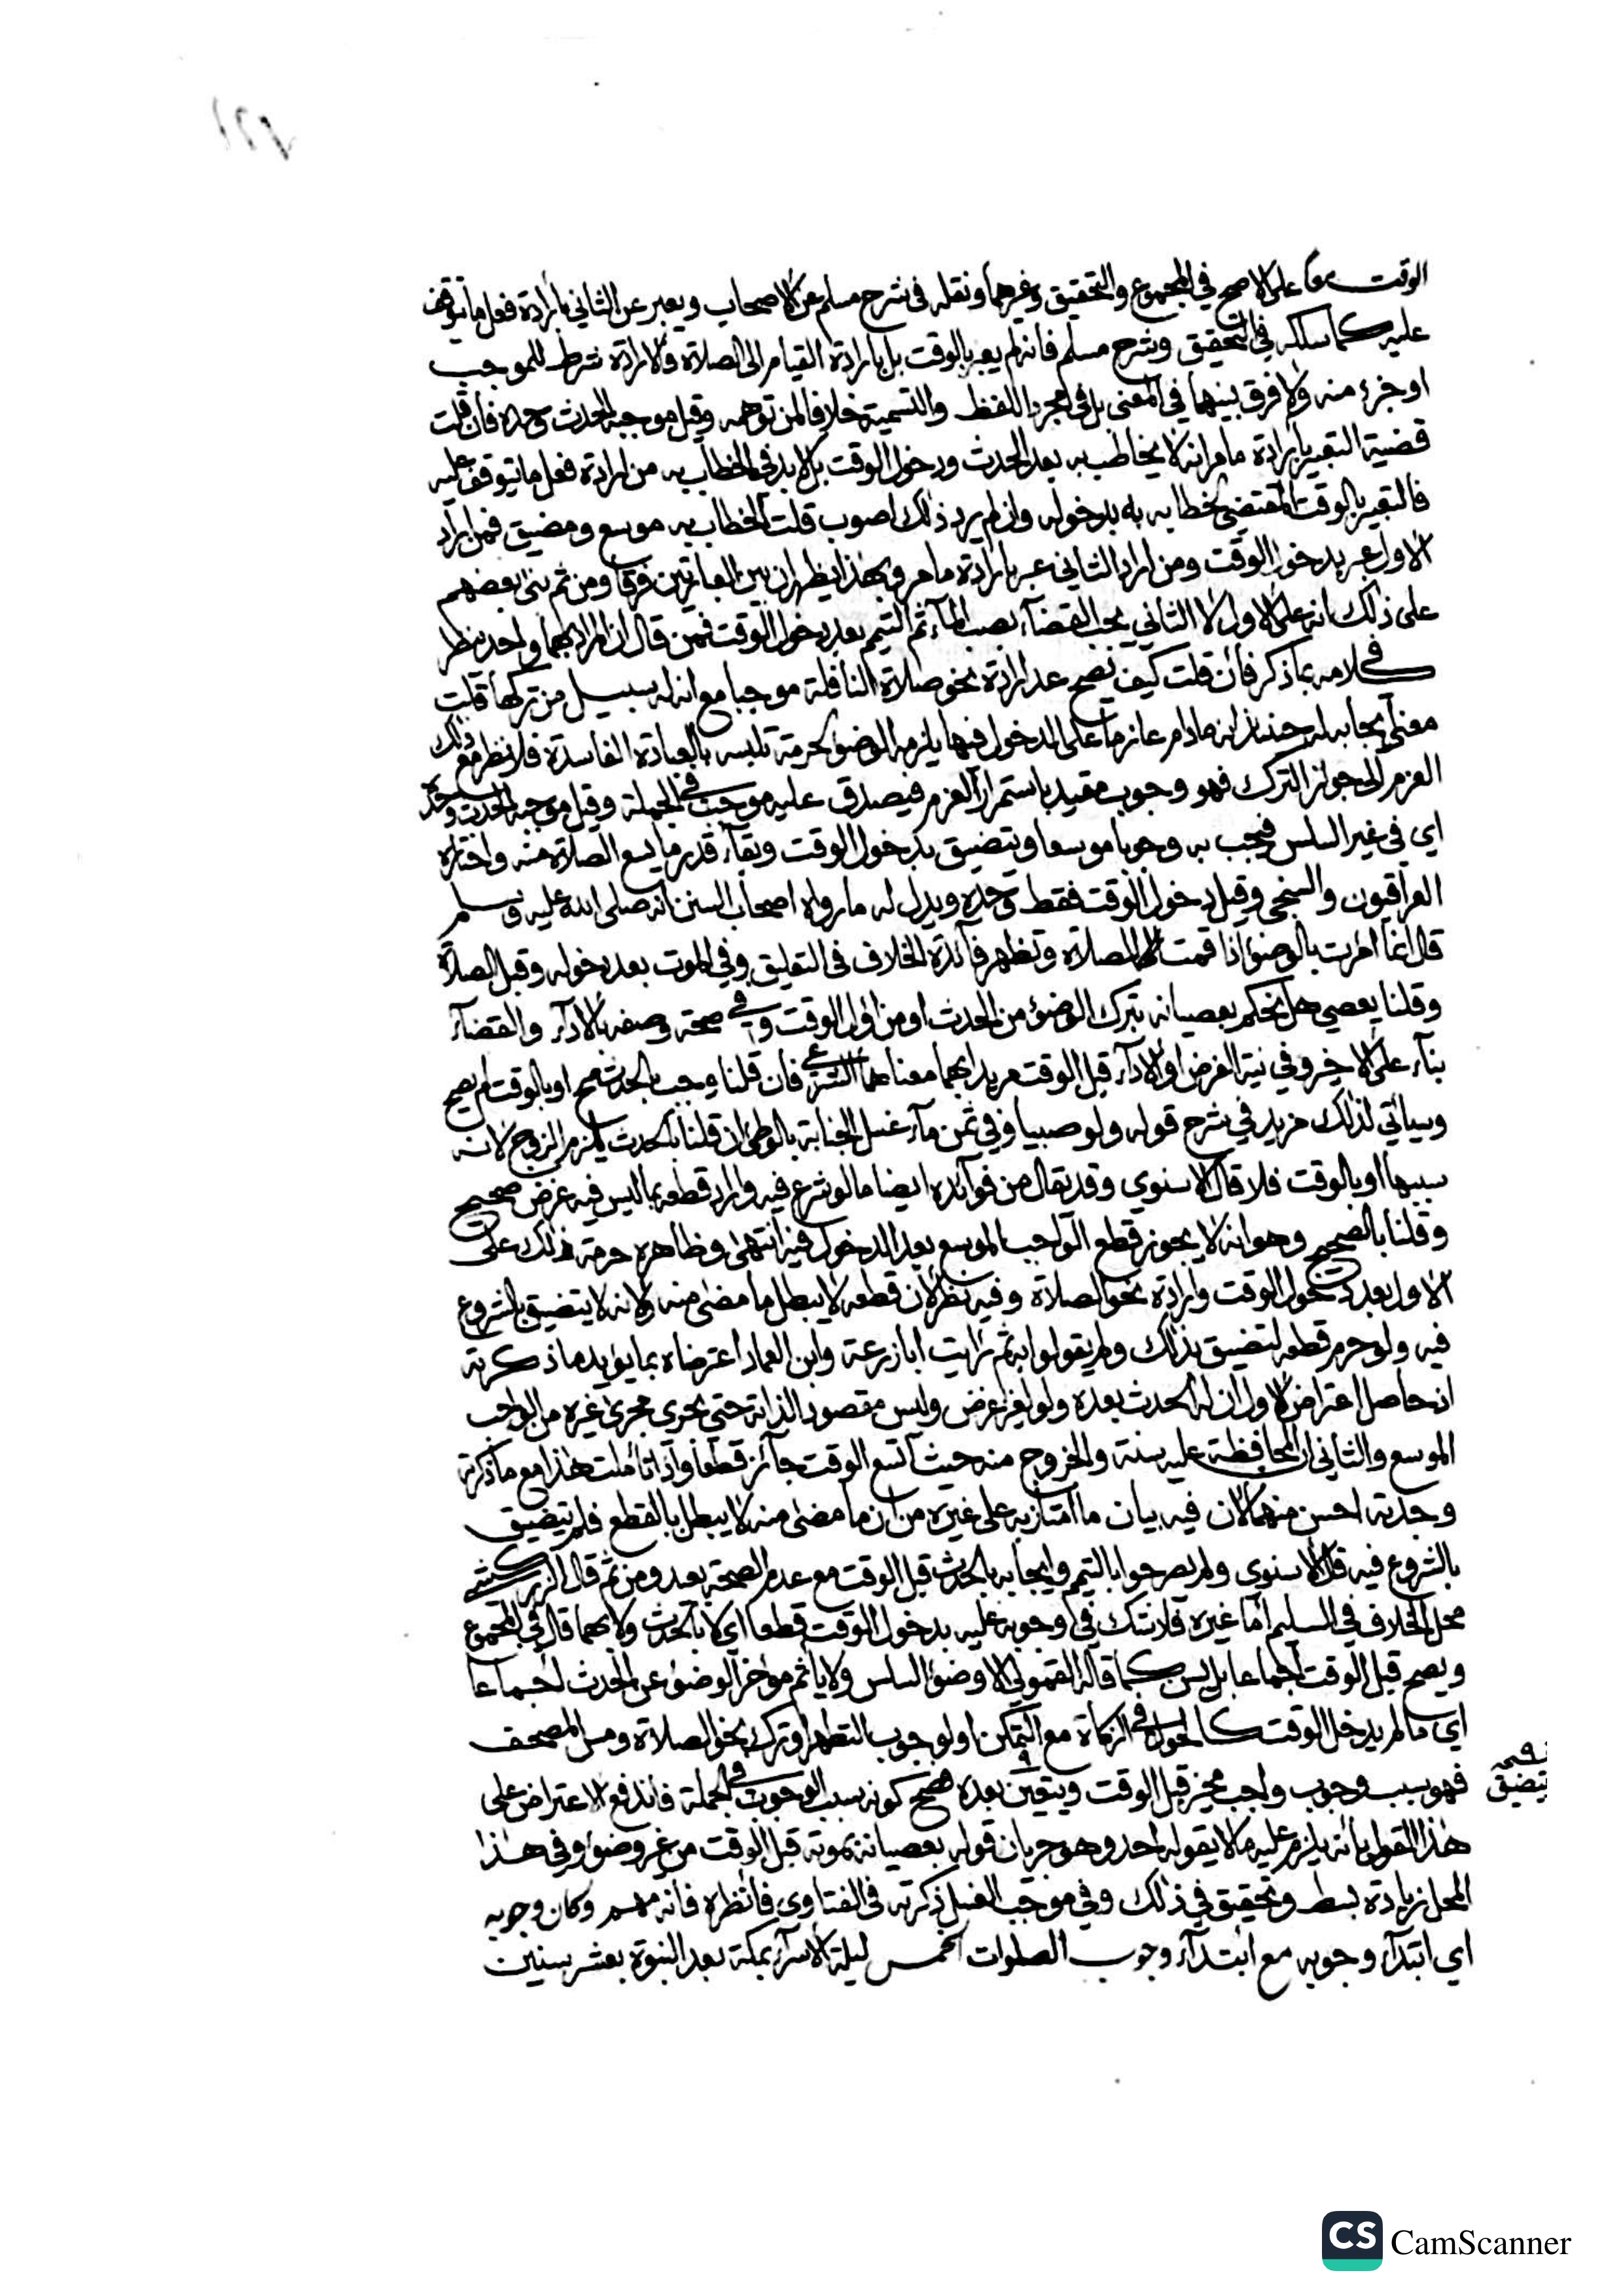 الوقت معا على الاصح في المجموع والتحقيق وغيرهما ونقله في شرح مسلم عن الاصحاب ويعبر عن الثاني بارادة فعل ما تتوقف
عليه كما سلكه في التحقيق وشرح مسلم فانه لم يعبر بالوقت بل بارادة القيام الى الصلاة والارادة شرط للموجب
او جزء منه ولا فرق بينهما في المعنى بل في مجرد اللفظ والتسمية خلافا لمن توهمه وقيل موجبه الحدث وحده فان قلت
قضية التعبير بارادة ما مر انه لا يخاطب به بعد الحدث ودخول الوقت بل لا بد في الخطاب به من ارادة فعل ما يتوقف عليه
فالتعبير بالوقت المقتضي لخطابه به بدخوله وان لم يرد ذلك اصوب قلت الخطاب به موسع ومضيق فمن اراد
الاول عبر بدخول الوقت ومن اراد الثاني عبر بارادة ما مر وبهذا يظهر ان بين العبارتين فرقا ومن ثم بنى بعضهم
على ذلك انه على الاول لا الثاني يجب القضاء بصب الماء ثم التيمم بعد دخول الوقت فمن قال ان المراد بهما واحد ينظر
في كلامه بما ذكر فان قلت كيف يصح عد ارادة نحو صلاة النافلة موجبا مع انه له سبيل من تركها قلت
معنى ايجابه له حينئذ انه ما دام عازما على الدخول فيها يلزمه الوضوء لحرمة تلبسه بالعبادة الفاسدة فلا نظر مع ذلك
العزم الى جواز الترك فهو وجوب مقيد باستمرار العزم فيصدق عليه موجب في الجملة وقيل موجبه الحدث وحده
اي في غير السلس فيجب به وجوبا موسعا ويتضيق بدخول الوقت وبقاء قدر ما يسع الصلاة منه واختاره
العراقيون والسنجي وقيل دخول الوقت فقط وحده ويدل له ما رواه اصحاب السنن انه صلى الله عليه وسلم
قال انما امرت بالوضوء اذا قمت الى الصلاة وتظهر فائدة الخلاف في التعليق وفي الموت بعد دخوله وقبل الصلاة
وقلنا يعصي هل نحكم بعصيانه بترك الوضوء من الحدث او من اول الوقت وفي صحة وصفه بالاداء والقضاء
بناء على الاخير وفي نية الفرض او الاداء قبل الوقت مريدا بهما معناهما الشرعي فان قلنا وجب بالحدث صح او بالوقت لم يصح
وسيأتي لذلك مزيد في شرح قوله ولو صبيا وفي ثمن ماء غسل الجنابة بالوطئ ان قلنا بالحدث لزم الزوج لانه
سببها او بالوقت فلا قال الاسنوي وقد يقال من فوائده ايضا ما لو شرع فيه واراد قطعه بما ليس فيه غرض صحيح
وقلنا بالصحيح وهو انه لا يجوز قطع الواجب الموسع بعد الدخول فيه انتهى وظاهره حرمة ذلك على
الاول بعد دخول الوقت وارادة نحو الصلاة وفيه نظر لان قطعه لا يبطل ما مضى منه ولانه لا يتضيق بالشروع
فيه ولو حرم قطعه لتضيق بذلك ولم يقولوا به ثم رايت ابا زرعة وابن العماد اعترضاه بما يؤيد ما ذكرته
اذ حاصل اعتراض الاول ان له الحدث بعده ولو لغير غرض وليس مقصودا لذاته حتى يجرى مجرى غيره من الواجب
الموسع والثاني ان المحافظة عليه سنة والخروج منه حيث اتسع الوقت جائز قطعا واذا تاملت هذا مع ما ذكرته
وجدته احسن منهما لان فيه بيان ما امتاز به على غيره من ان ما مضى منه لا يبطل بالقطع فلم يتضيق
بالشروع فيه قال الاسنوي ولم يصرحوا بالتيمم وايجابه بالحدث قبل الوقت مع عدم الصحة بعيد ومن ثم قال الزركشي
محل الخلاف في السليم اما غيره فلا شك في وجوبه عليه بدخول الوقت قطعا اي لا بالحدث ولا بهما قال في المجموع
ويصح قبل الوقت اجماعا بل يسن كما قاله القمولي الا وضوء السلس ولا ياثم مؤخر الوضوء عن الحدث اجماعا
اي ما لم يدخل الوقت كالحول في الزكاة مع التمكن او لوجوب التطهر او ترك نحو الصلاة ومس المصحف
فهو سبب وجوب واجب مخير قبل الوقت ويتعين بعده فصح كونه سبب الوجوب في الجملة فاندفع الاعتراض على
يتضيق
هذا القول بانه يلزم عليه ما لا يقوله احد وهو جريان قوله بعصيانه بموته قبل الوقت من غير وضوء وفي هذا
المحل زيادة بسط وتحقيق في ذلك وفي موجب الغسل ذكرته في الفتاوى فانظره فانه مهم وكان وجوبه
اي ابتداء وجوبه مع ابتداء وجوب الصلوات الخمس ليلة الاسراء بمكة بعد النبوة بعشر سنين
CS CamScanner